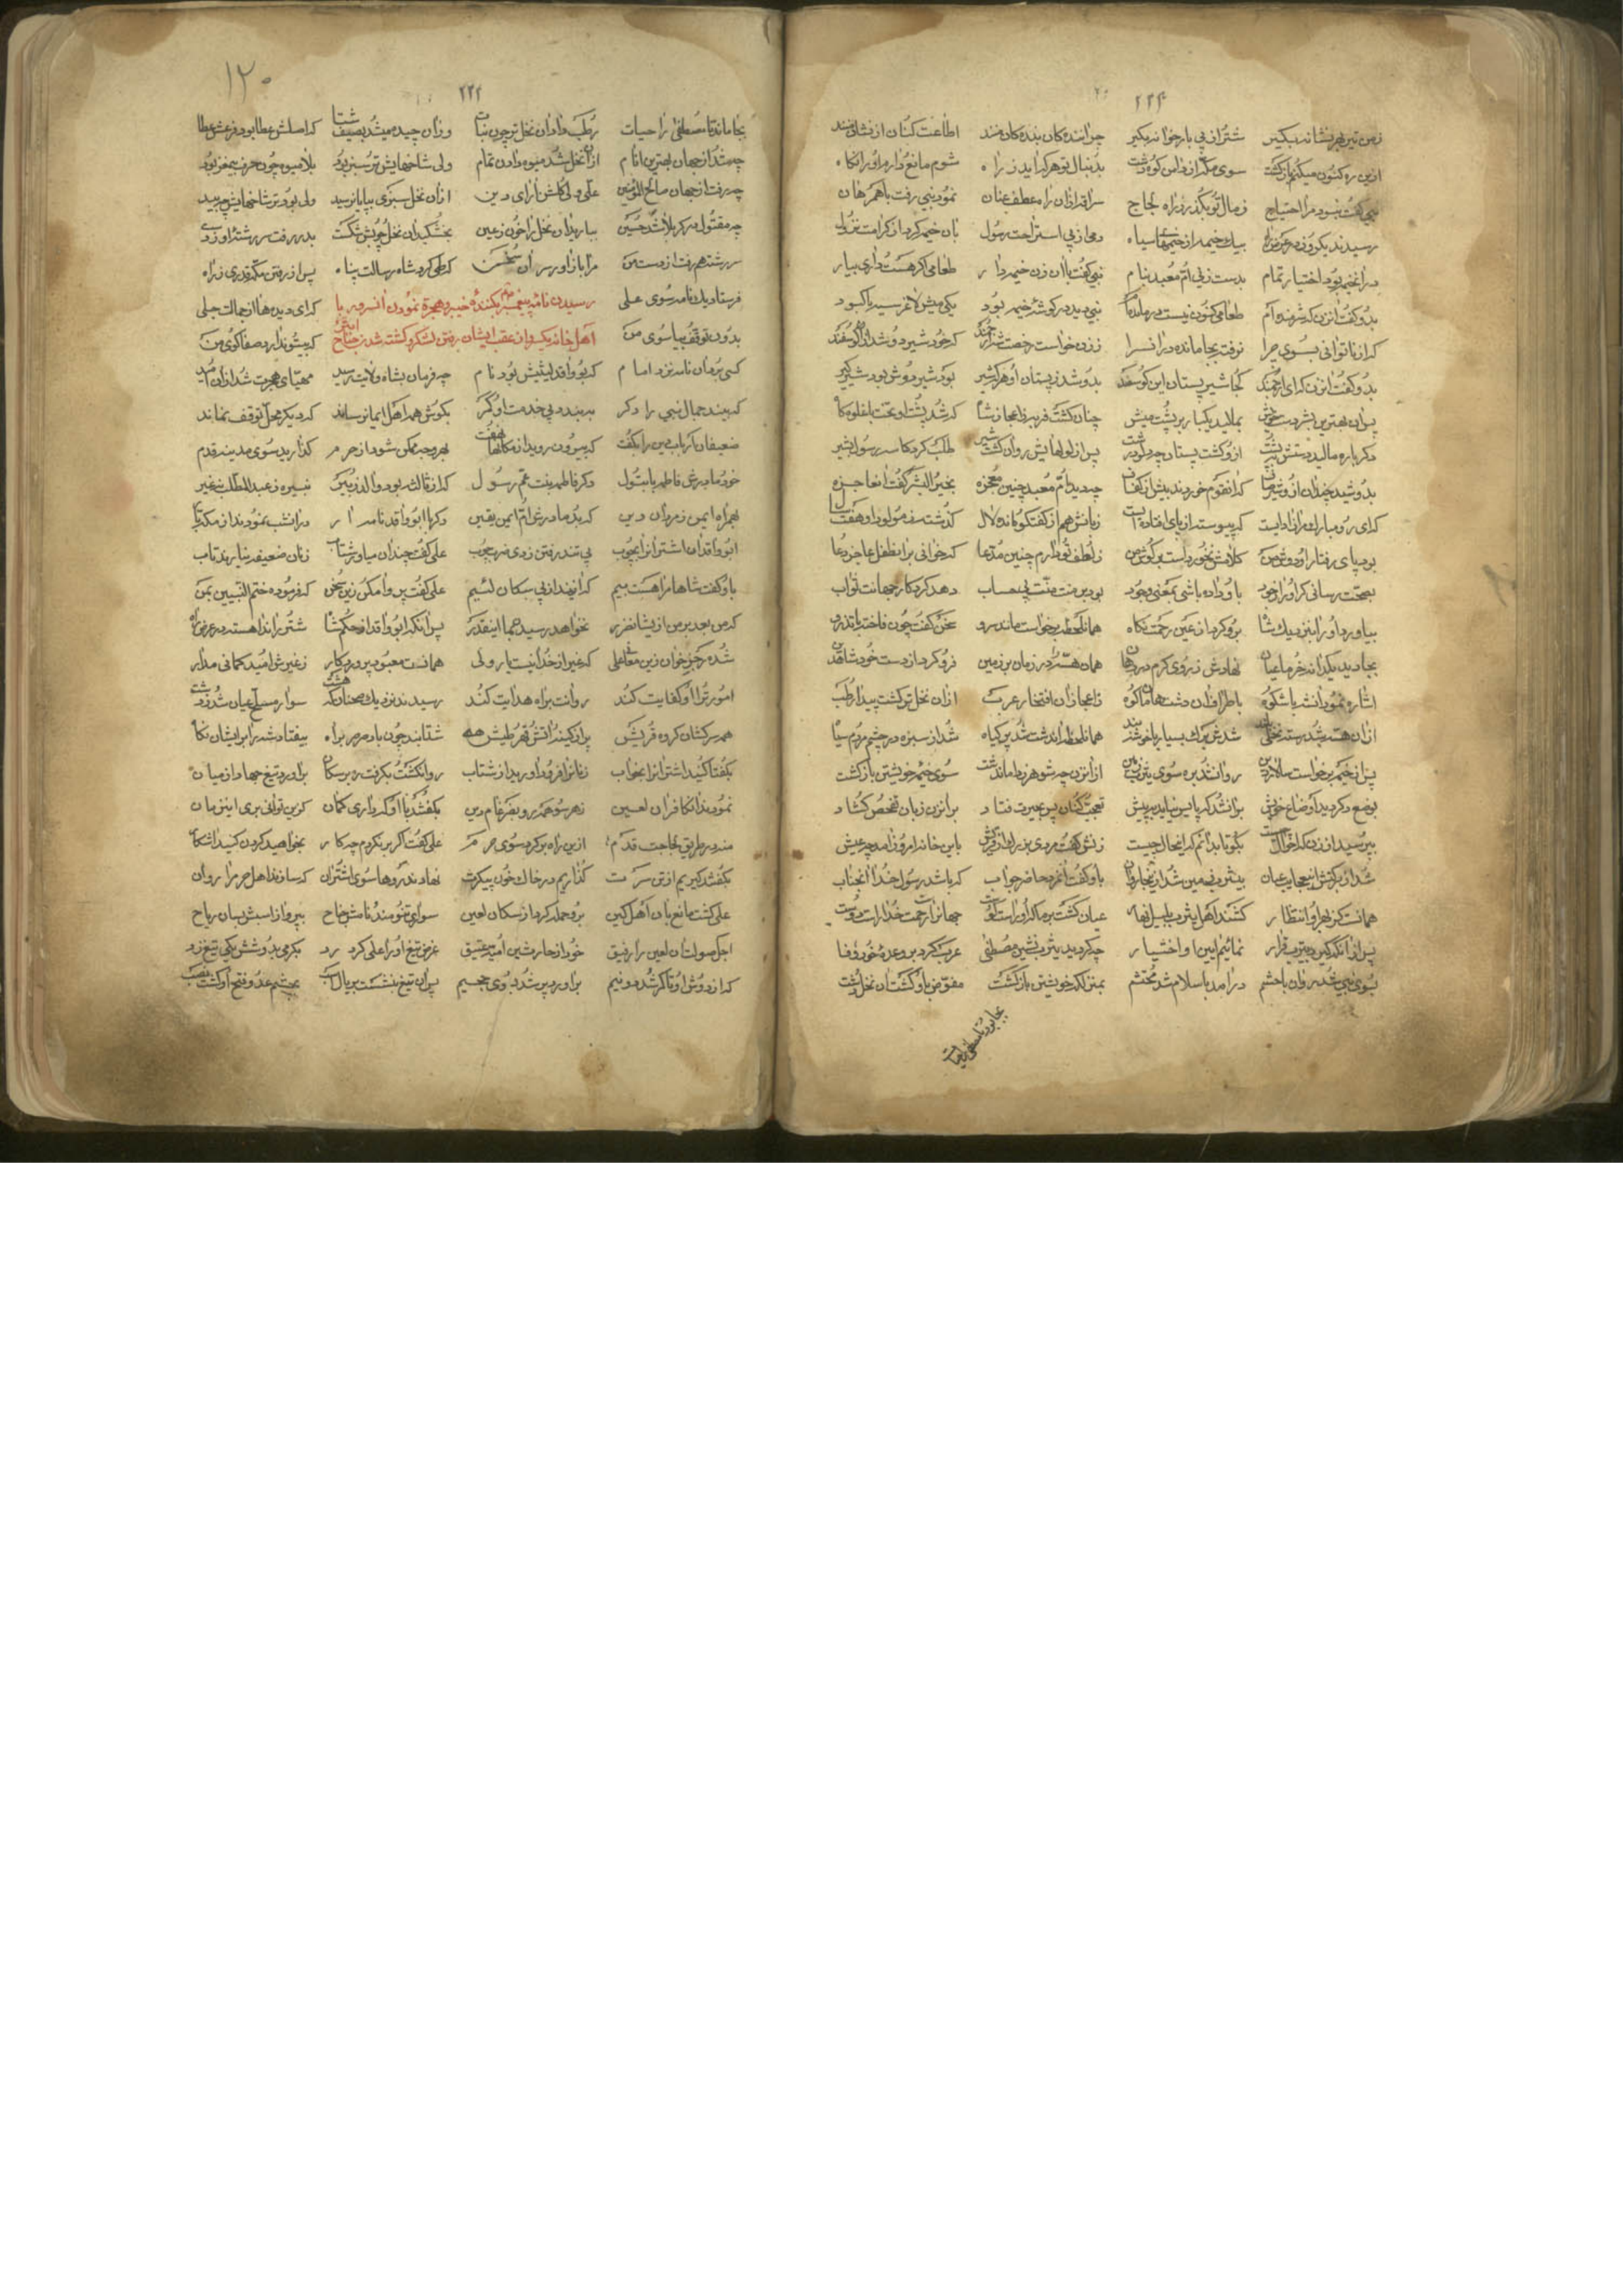 ۲۲۴
زمن تیر بهر نشانه بگیر شتر از پی بار خوانه بگیر چراننده کان بنده کان منند اطاعت کنان از نشان منند
ازین ره کنون میکنم بازگشت سوی مکه از دامن کوه و دشت بدنبال تو هر که آید ز راه شوم مانع و دارم او را نگاه
نبی گفت نبود مرا احتیاج ز مال تو بگذر ز راه لجاج سراقه از آن راه عطف عنان نمود و نبی رفت با همرهان
رسیدند یکروز در عرض راه بیک خیمه از خیمهای سیاه دمی از پی استراحت رسول بان خیمه کرد از کرامت نزول
در آن خیمه بود اختیار تمام بدست زنی ام معبد بنام نبی گفت با آن زن خیمه دار طعامی اگر هست داری بیار
بدو گفت آن زن که شرمنده ام طعامی کنون نیست درمانده ام نبی دید در گوشه خیمه بود یکی میش لاغر سیه یا کبود
که از ناتوانی بسوی چرا نرفته بجا مانده در آن سرا ز زن خواست رخصت شه ارجمند که خود شیر دوشد از آن گوسفند
بدو گفت آن زن که ای ارجمند کجا شیر پستان این گوسفند بدوشد ز پستان او هر که شیر بود شیر دوش بود شیرگیر
پس آن بهترین بشر دست خویش بمالید یکبار بر پشت میش چنان گشت فربه ز اعجاز شاه که شد پشت او تخت پهلو کاه
دگرباره مالید دستش به پشت ازو گشت پستان چو دلو درشت پس از لولهایش روان گشت شیر طلب کرد کاسه رسول بشیر
بدوشید چندان ازو شیر صاف که آن قوم خوردند بیش از کفاف چو دید ام معبد چنین معجزه بخیر البشر گفت آن عاجزه
که ای رو مبارک مرا زاده ایست که پیوسته از پای افتاده ایست زبانش هم از گفتگو مانده لال گذشته ز مولود او هفت سال
بود پای رفتار او دوش من کلامش نخورده است بر گوش من ز لطف تو دارم چنین مدعا که خوانی بر آن طفل عاجز دعا
بصحت رسانی گر او را ز جود باو داده باشی بمعنی وجود بود بر منت منت بی حساب دهد کردگار جهانت ثواب
بیاورد او را بنزدیک شاه برو کرد از عین رحمت نگاه همان لحظه برخواست مانند سرو سخن گفت چون فاخته با تذرو
بجا دید یک دانه خرما عیان نهادش ز روی کرم در دهان همان هسته را در زمان بر زمین فرو کرد از دست خود شاه دین
اشاره نمود آن شه با شکوه باطراف آن دشت و هامان و کوه ز اعجاز آن افتخار عرب از آن نخل تر گشت پیدا رطب
از آن هسته شد رسته نخلی بلند شدش برگ بسیار با خوشه بند همان لحظه آن دشت شد پر گیاه شد از سبزه در چشم مردم سیاه
پس از خیمه برخواست سالار دین روان شد بره سوی یثرب زمین از آن زن چو شوهر در آمد ز دشت سوی خیمه خویشتن بازگشت
بوضع دگر دید اوضاع خویش بر آن شد که پا پس نیاید به پیش تعجب کنان پر بحیرت فتاد بر آن زن زبان تفحص گشاد
بپرسید از زن که احوال چیست بگو تا بدانم که این حال چیست زنش گفت مردی بزرگ از قریش باین خانه امروز آمد چو عیش
شد از برکتش این عجایب عیان بیثرب زمین شد از اینجا روان باو گفت آن مرد حاضر جواب که باشد رسول خدا آن جناب
همانست کز بهر او انتظار کشند اهل یثرب بلیل و نهار عیان گشت بر ما که او راست گوست جهان را ز رحمت خدا راست دوست
پس از آنکه گیرد بیثرب قرار نمائیم ایمان او اختیار چو گردید یثرب نشین مصطفی عرب کرد بر وعده خود وفا
بسوی نبی شد روان با حشم در آمد باسلام شد محتشم بمنزلگه خویشتن بازگشت مفوض باو گشت آن نخل و دشت
۱۲۰
۲۲۴
بجا ماند تا مصطفی را حیات رطب داد آن نخل تر چون نبات وز آن چیده میشد بصیف و شتا که اصلش عطا بود و فرعش عطا
چو شد از جهان بهترین انام از آن نخل شد میوه دادن تمام ولی شاخهایش تر و سبز بود بلا میوه چون حرف بیمغز بود
چو رفت از جهان صالح المؤمنین علی ولی گلشن آرای دین از آن نخل سبزی بپایان رسید ولی بود تر شاخهایش چو بید
چو مقتول در کربلا شد حسین ببارید آن نخل را خون ز عین بخشکید آن نخل و چوبش شکست بدر رفت سررشته او ز دست
سررشته هم رفت از دست من مرا باز آور سر آن سخن که طی کرد شاه رسالت پناه پس از رفتن مکه قدری ز راه
فرستاد یک نامه سوی علی رسیدن نامه پیغمبر بکننده خیبر و هجرة نمودن آنسرور با که ای دیدها از جمالت جلی
بدون توقف بیا سوی من اهل خانه یکسو از عقب ایشان رفتن لشکر و کشته شدن جناح که بیتو ندارد صفا کوی من
کسی برد آن نامه نزد امام که بو واقد لیثیش بود نام چو فرمان بشاه ولایت رسید مهیای هجرت شد از آن امید
که بیند جمال نبی را دگر ببندد پی خدمت او کمر بگوش همه اهل ایمان رساند که دیگر محل توقف نماند
ضعیفان ارباب دین را بگفت که بیرون روید از مکانها نهفت بهر وجه ممکن شود از حرم گذارید سوی مدینه قدم
خود و مادرش فاطمه با بتول دگر فاطمه بنت عم رسول که از قالش بود والد زبیر نبیره ز عبد المطلب نه غیر
بهمراه ایمن ز مردان دین که بد مادرش ام ایمن یقین دگر با ابو واقد نامدار در آنشب نمودند از مکه بار
ابو واقد آن اشتران را بچوب پی تند رفتن زدی ضرب چوب علی گفت چندان میاور شتاب زنان ضعیفه ندارند تاب
باو گفت شاها مرا هست بیم که آیند از پی سگان لئیم علی گفت پروا مکن زین سخن که فرموده ختم النبیین بمن
که من بعد بر من ازیشان ضرر نخواهد رسیدن همه اینقدر پس آنکه ابو واقد از حکم شاه شتر راند آهسته در عرض راه
شده رجز خوان زین معنی علی که غیر از خدا نیست یار ولی همانست معبود پروردگار ز غیرش امید کمانی مدار
امور ترا او کفایت کند روانت براه هدایت کند رسیدند نزدیک صحنان که هشت سوار مسلح عیان شد ز دشت
همه سرکشان گروه قریش پر از کینه و آتش قهر و طیش شتابنده چون باد صرصر براه بیفتاد شه را بر ایشان نگاه
بگفتا کنید اشتران را بخواب زنان را فرود آورید از شتاب روان گشت بگرفت ره بر سگان برآورد تیغ جهاد از میان
نمودند آن کافران لعین ز هر سو همه رو بضرغام دین بگفتند با او که داری گمان کزین توانی بری این زمان
منه در طریق لجاجت قدم ازین راه برگرد سوی حرم علی گفت اگر برنگردم چه کار بخواهید کردن کنید آشکار
بگفتند گیریم از تن سرت گذاریم در خاک و خون پیکرت نهادند روها سوی اشتران که سازند اهل حرم را روان
علی گشت مانع بان اهل کین برو حمله کرد از سگان لعین سواری تنومند نامش جناح بپرواز اسبش بسان ریاح
اجل صولت آن لعین را رفیق خود از حارث بن امیه عتیق عرض تیغ او را علی کرد رد بگرمی بدوشش یکی تیغ زد
که از دوش او تا کمر شد دو نیم برآورد پر شد بوی جحیم پس آن تیغ بنشست بر یال اسب بچشم عدو فتح او گشت نصب